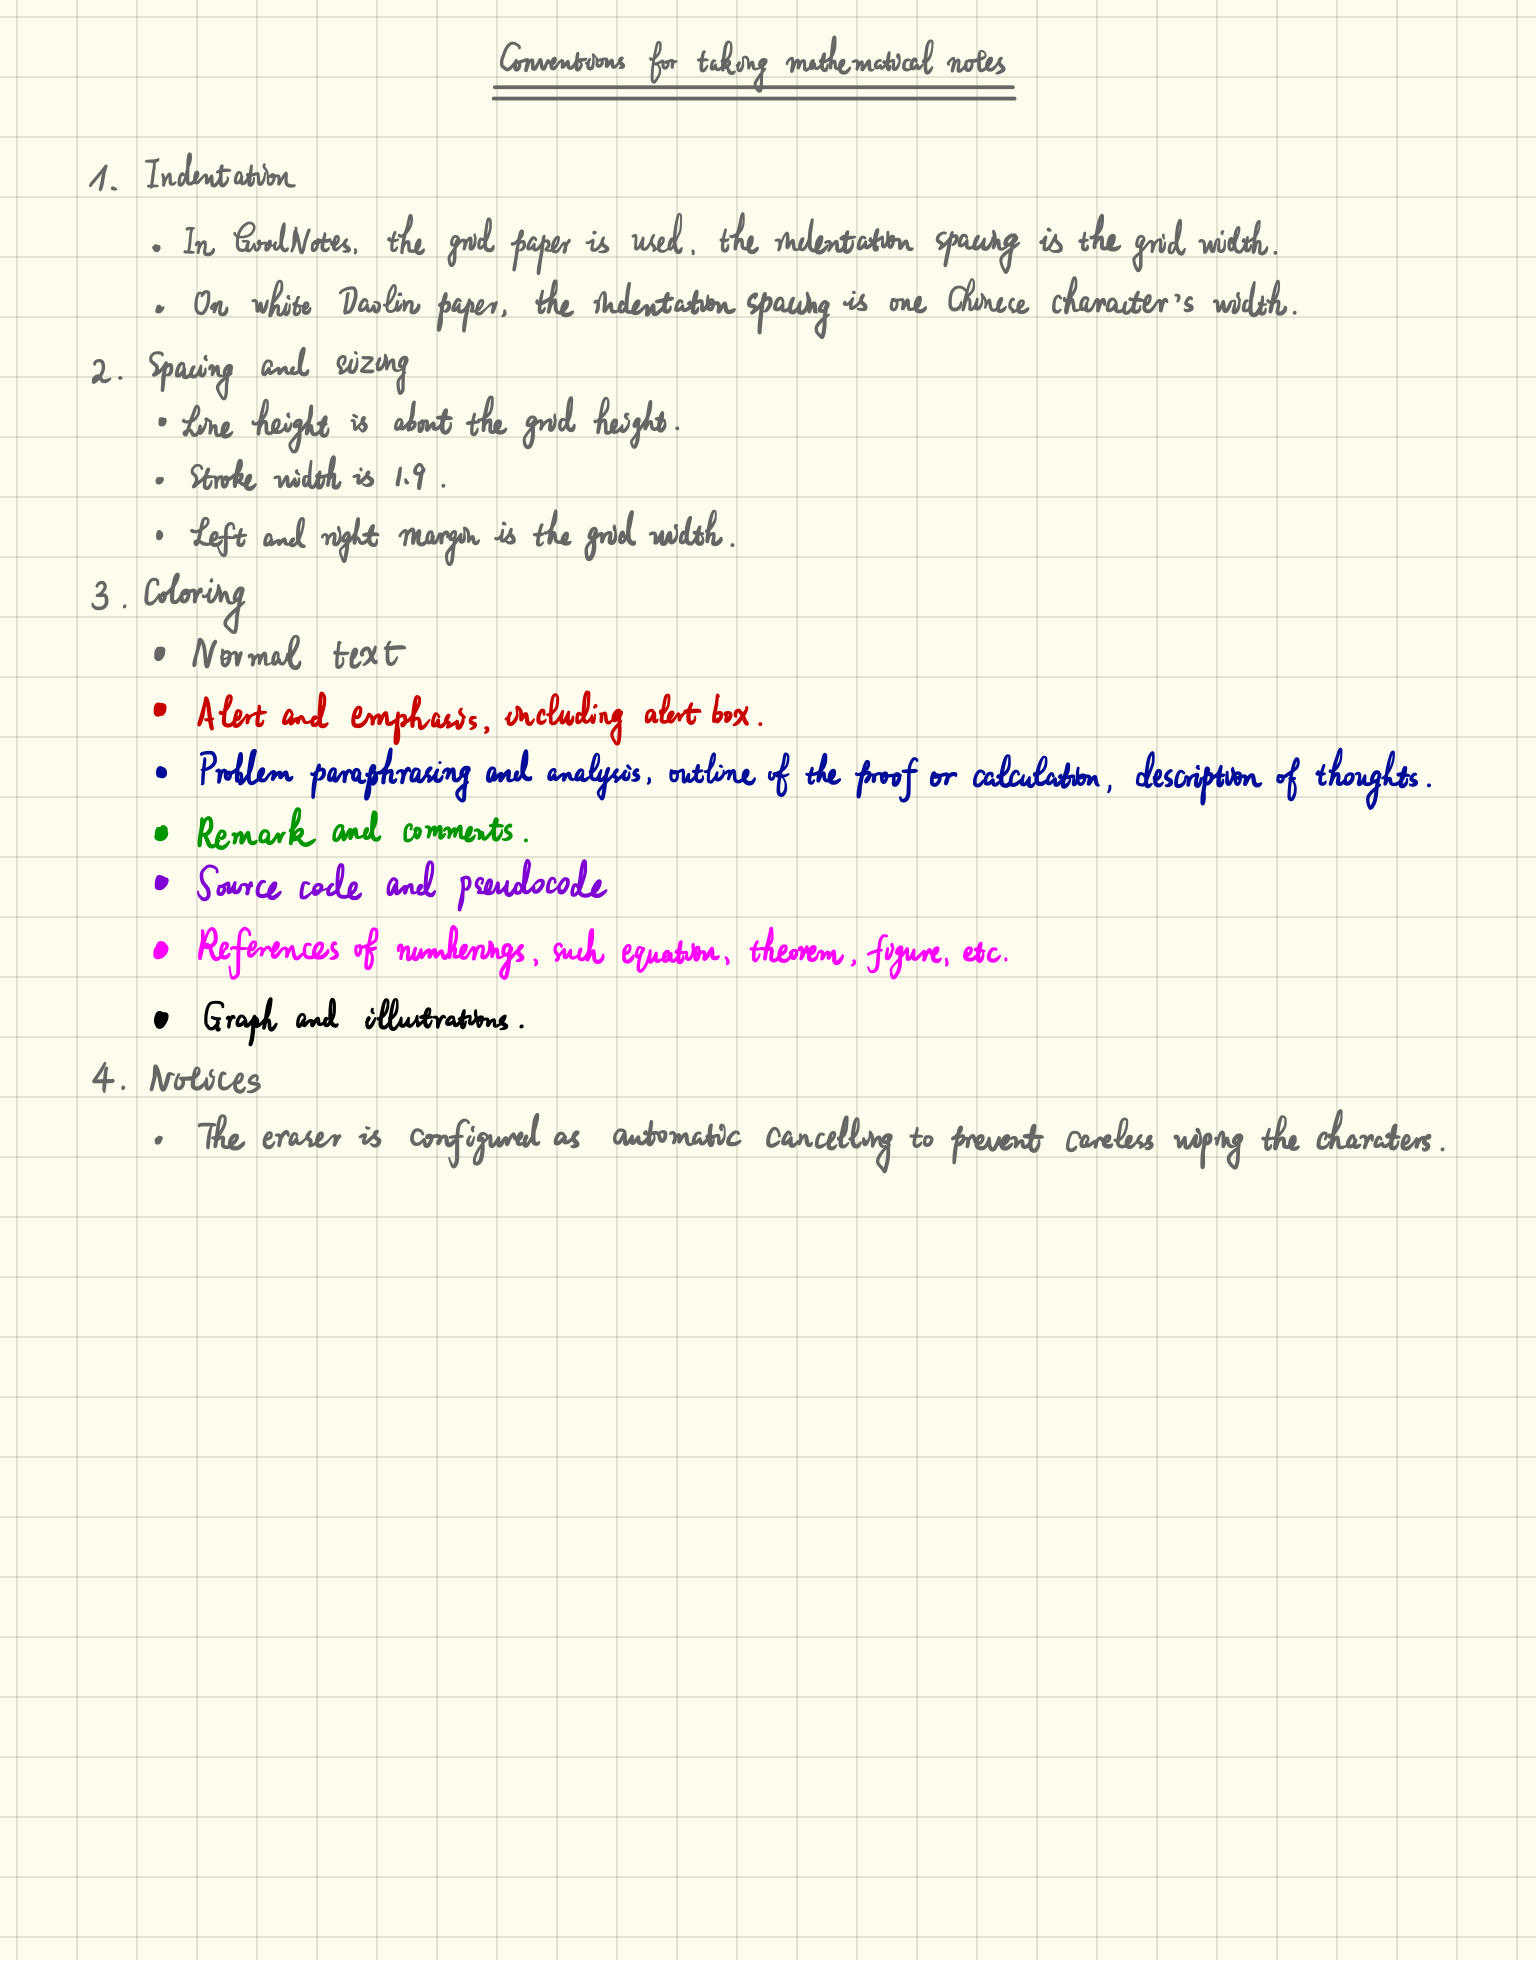 Conventions for taking mathematical notes
1. Indentation
• In GoodNotes, the grid paper is used, the indentation spacing is the grid width.
• On white Daolin paper, the indentation spacing is one Chinese character's width.
2. Spacing and sizing
• Line height is about the grid height.
• Stroke width is 1.9.
• Left and right margin is the grid width.
3. Coloring
• Normal text
• Alert and emphasis, including alert box.
• Problem paraphrasing and analysis, outline of the proof or calculation, description of thoughts.
• Remark and comments.
• Source code and pseudocode
• References of numberings, such equation, theorem, figure, etc.
• Graph and illustrations.
4. Notices
• The eraser is configured as automatic cancelling to prevent careless wiping the charaters.